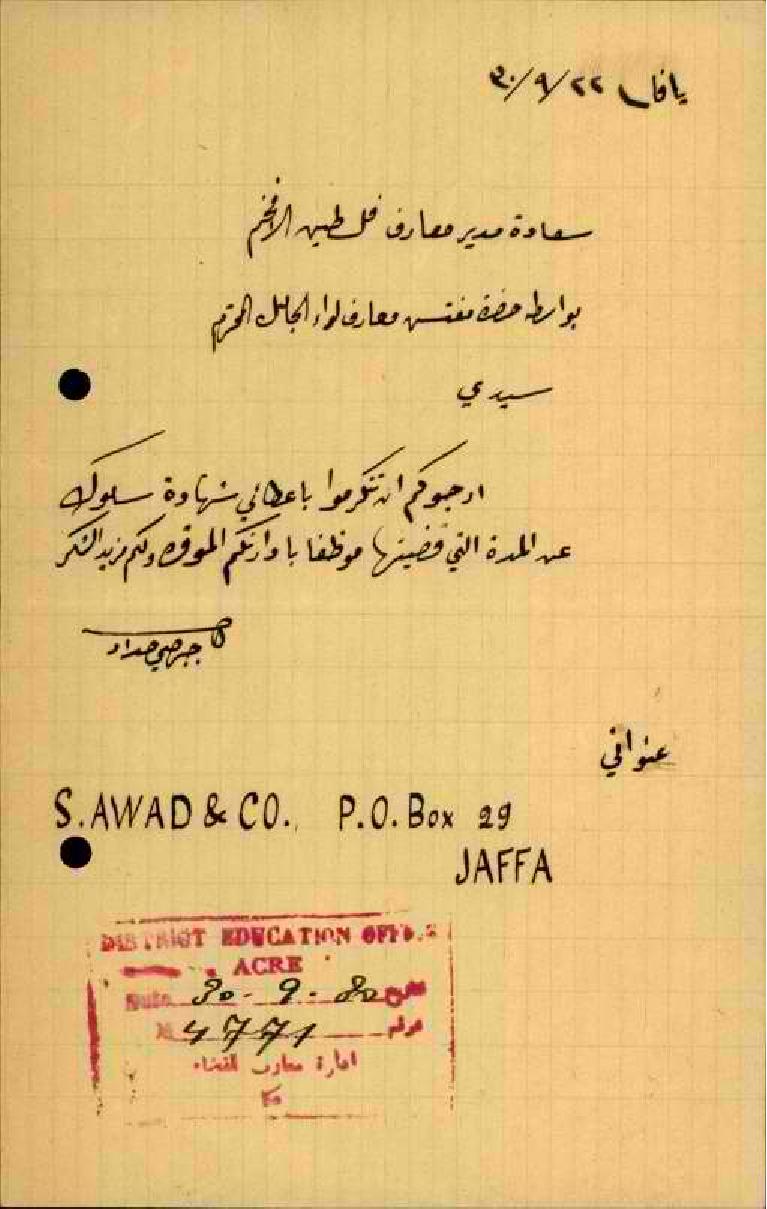 يافا في ٢٢/٩/٣٠
سعادة مدير معارف فلسطين الافخم
بواسطة حضرة مفتش معارف لواء الجليل المحترم
سيدي
ارجوكم ان تتكرموا باعطائي شهادة سلوك
عن المدة التي قضيتها موظفا بادارتكم الموقرة ولكم مزيد الشكر
جرجي حداد
عنواني
S. AWAD & CO., P.O. Box 29
JAFFA
DISTRICT EDUCATION OFFICE
ACRE
Date 30-9-30
№ 4771 نمرة
ادارة معارف القضاء
عكا